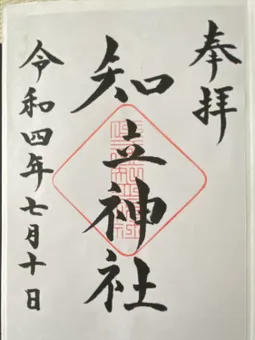 奉拝
知立神社
令和四年七月十日